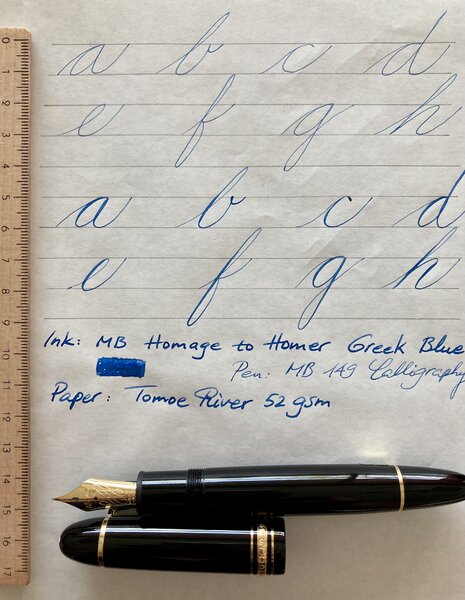 a b c d
e f g h
a b c d
e f g h
Ink: MB Homage to Homer Greek Blue
Pen: MB 149 Calligraphy
Paper: Tomoe River 52 gsm
0
1
2
3
4
5
6
7
8
9
10
11
12
13
14
15
16
17